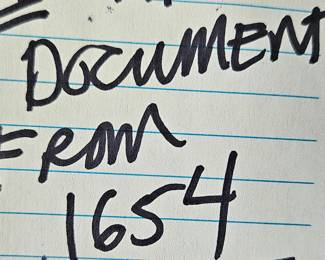 DOCUMENT
FROM
1654